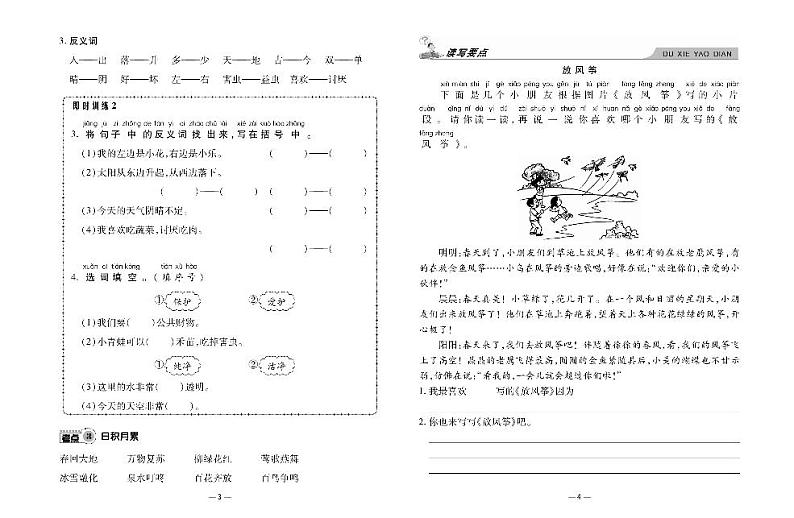 3. 反义词
人——出 落——升 多——少 天——地 古——今 双——单
晴——阴 好——坏 左——右 害虫——益虫 喜欢——讨厌
即时训练 2
jiāng jù zi zhōng de fǎn yì cí zhǎo chū lái xiě zài kuò hào zhōng
3. 将句子中的反义词找出来,写在括号中。
(1)我的左边是小花,右边是小乐。 ( )——( )
(2)太阳从东边升起,从西边落下。
( )——( ) ( )——( )
(3)今天的天气阴晴不定。 ( )——( )
(4)我喜欢吃蔬菜,讨厌吃肉。
( )——( )
xuǎn cí tián kòng tián xù hào
4. 选词填空。(填序号)
①保护 ②爱护
(1)我们要( )公共财物。
(2)小青蛙可以( )禾苗,吃掉害虫。
①纯净 ②洁净
(3)这里的水非常( )透明。
(4)今天的天空非常( )。
考点 日积月累
春回大地 万物复苏 柳绿花红 莺歌燕舞
冰雪融化 泉水叮咚 百花齐放 百鸟争鸣
—3—
读写要点 DU XIE YAO DIAN
放风筝
xià miàn shì jǐ gè xiǎo péng you gēn jù tú piàn fàng fēng zheng xiě de xiǎo piàn
下面是几个小朋友根据图片《放风筝》写的小片
duàn qǐng nǐ dú yi dú zài shuō yi shuō nǐ xǐ huan nǎ gè xiǎo péng you xiě de fàng
段。请你读一读,再说一说你喜欢哪个小朋友写的《放
fēng zheng
风筝》。
明明:春天到了,小朋友们到草地上放风筝。他们有的在放老鹰风筝,有
的在放金鱼风筝……小鸟在风筝的旁边歌唱,好像在说:“欢迎你们,亲爱的小
伙伴!”
晨晨:春天真美!小草绿了,花儿开了。在一个风和日丽的星期天,小朋
友们出来放风筝了!他们在草地上奔跑着,望着天上各种花花绿绿的风筝,开
心极了!
阳阳:春天来了,我们去放风筝吧!伴随着徐徐的春风,看,我们的风筝飞
上了高空!晶晶的老鹰飞得最高,圆圆的金鱼紧随其后,小美的蝴蝶也不甘示
弱,仿佛在说:“看我的,一会儿就会超越你们啦!”
1. 我最喜欢 写的《放风筝》因为
2. 你也来写写《放风筝》吧。
—4—